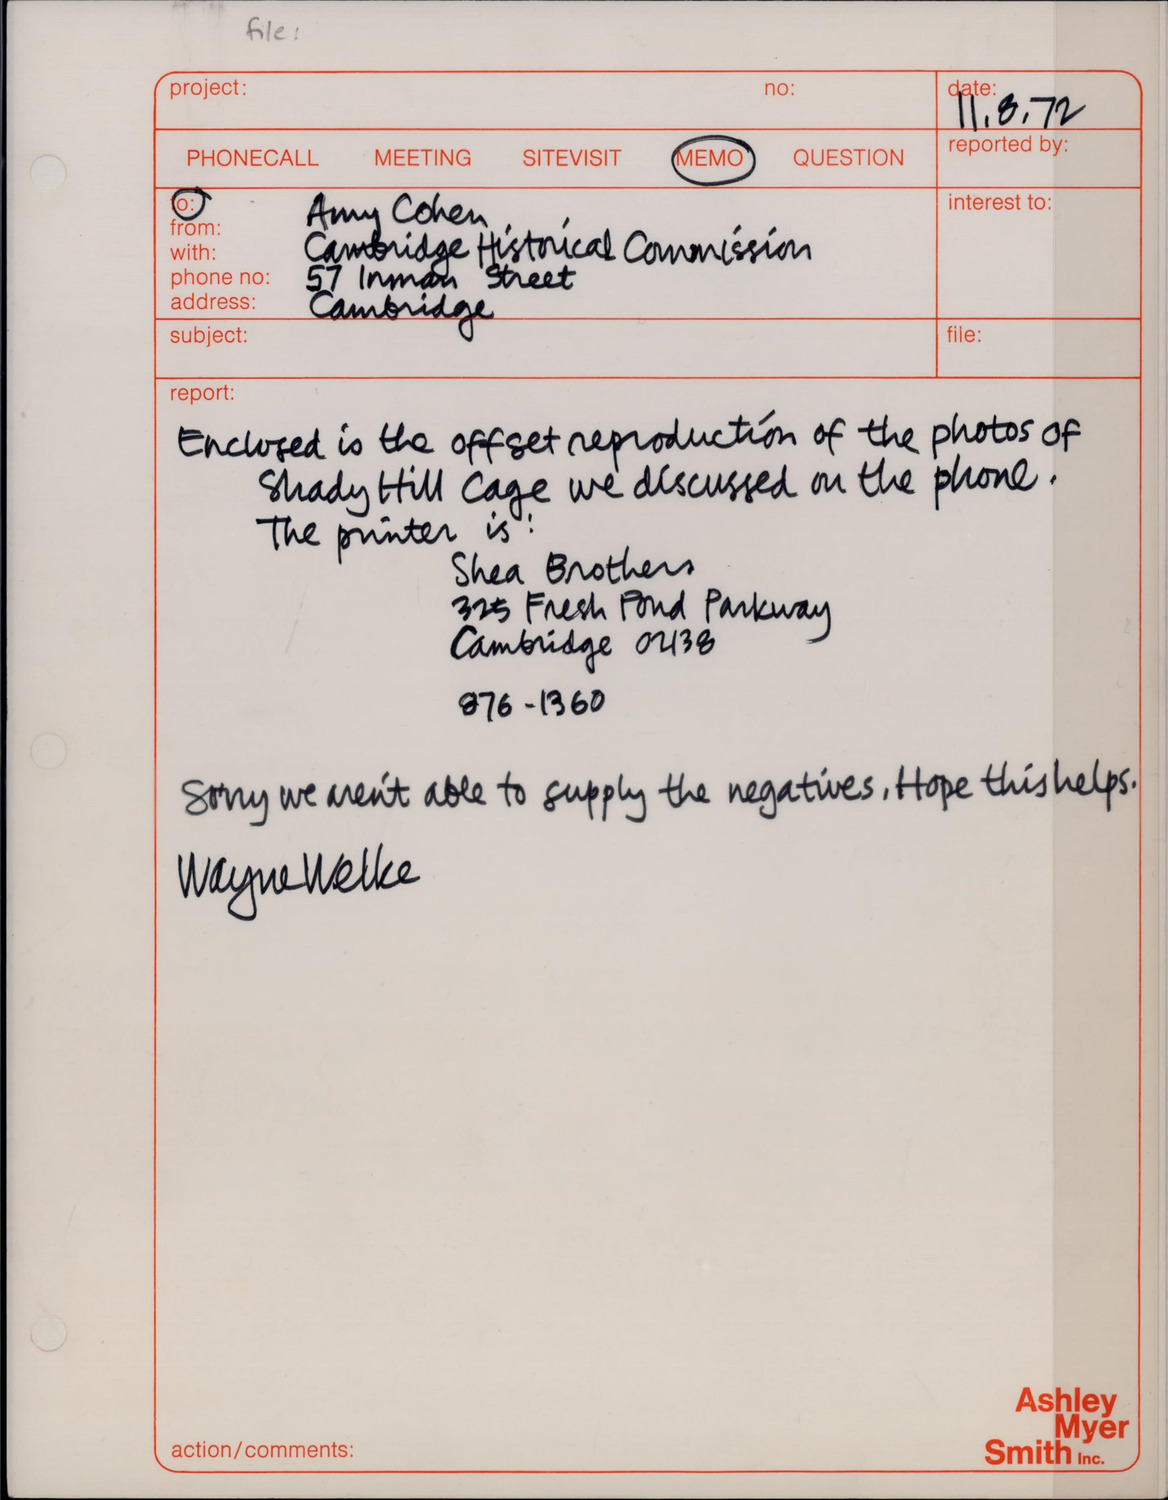 file:
project: no: date:
11.8.72
PHONECALL MEETING SITEVISIT MEMO QUESTION reported by:
to: Amy Cohen interest to:
from:
with: Cambridge Historical Commission
phone no: 57 Inman Street
address: Cambridge
subject: file:
report:
Enclosed is the offset reproduction of the photos of
Shady Hill Cage we discussed on the phone.
The printer is:
Shea Brothers
325 Fresh Pond Parkway
Cambridge 02138
876-1360
Sorry we aren't able to supply the negatives. Hope this helps.
Wayne Welke
Ashley
Myer
Smith Inc.
action/comments: